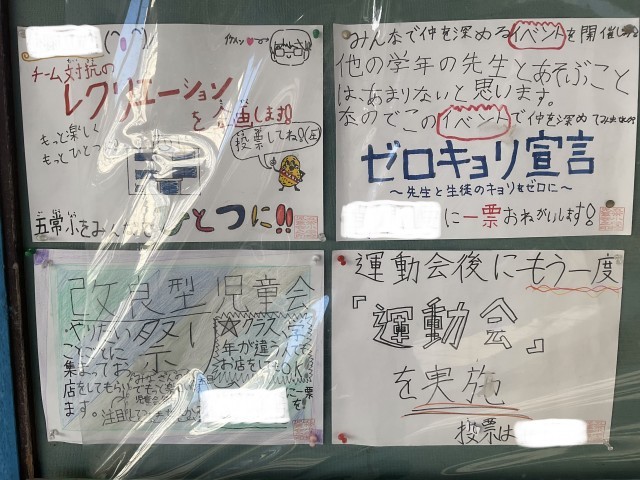 イケメン
チーム対抗の
レクリエーション
を企画します!
もっと楽しく
もっとひとつ
投票してね!
ひとつに!!
みんなで仲を深めるイベントを開催し
他の学年の先生とあそぶこと
は、あまりないと思います。
なのでこのイベントで仲を深めて
ゼロキョリ宣言
〜先生と生徒のキョリをゼロに〜
に一票おねがいします!
改良型児童会
祭り
やりたい
ごとに
集まってお
店をしてもらい
ます。
☆クラス、学
年が違う
お店を OK
注目
に一票
を!
運動会後にもう一度
『運動会』
を実施
投票は